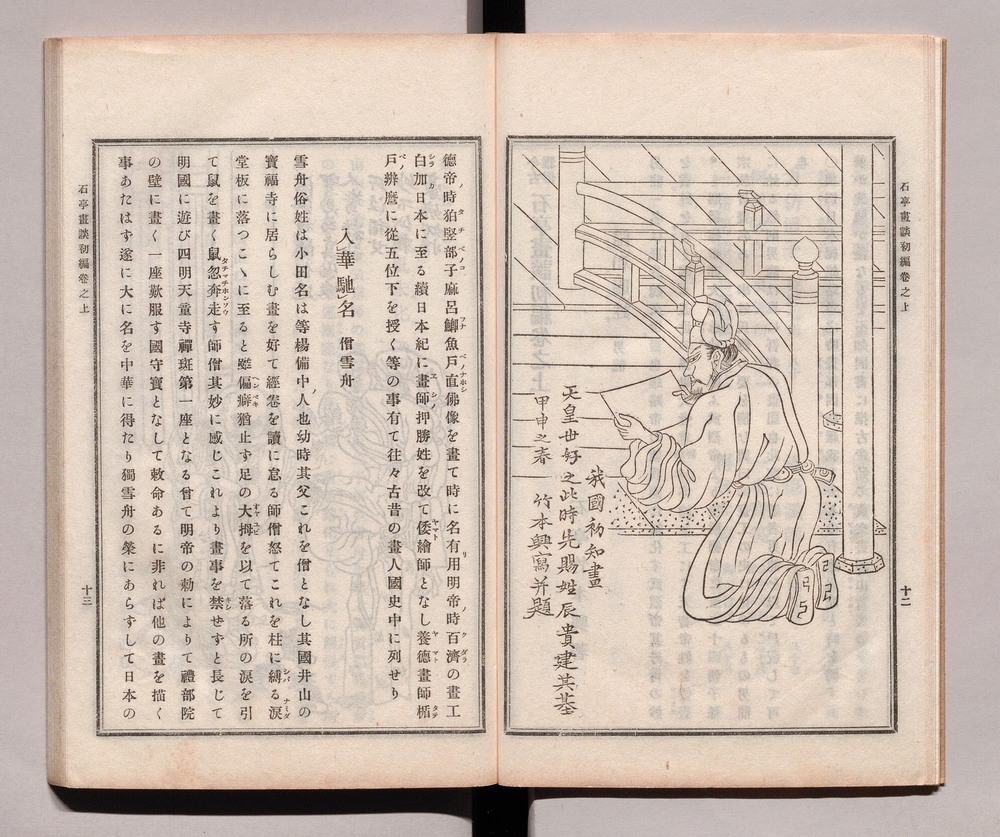 石亭畫談初編卷之上
十二
我國初知畫
天皇世好之此時先賜姓辰貴建其基
甲申之春 竹本興寫并題
德帝ノ時狛竪部子麻呂鯽魚戸直佛像を畫て時に名有リ用明帝ノ時百濟の畫工
白加日本に至る續日本紀に畫師押勝姓を改て倭繪師となし養德畫師楯
戸辨麿に從五位下を授く等の事有て往々古昔の畫人國史中に列せり
入華馳名 僧雪舟
雪舟俗姓は小田名は等楊備中ノ人也幼時其父これを僧となし其國井山の
寶福寺に居らしむ畫を好て經卷を讀に怠る師僧怒てこれを柱に縛る淚
堂板に落つこゝに至ると雖偏癖猶止す足の大拇を以て落る所の淚を引
て鼠を畫く鼠忽奔走す師僧其妙に感じこれより畫事を禁せすと長じて
明國に遊び四明天童寺禪班第一座となる曾て明帝の勅によりて禮部院
の壁に畫く一座歎服す國守寶となして敕命あるに非れば他の畫を描く
事あたはす遂に大に名を中華に得たり獨雪舟の榮にあらすして日本の
石亭畫談初編卷之上
十三